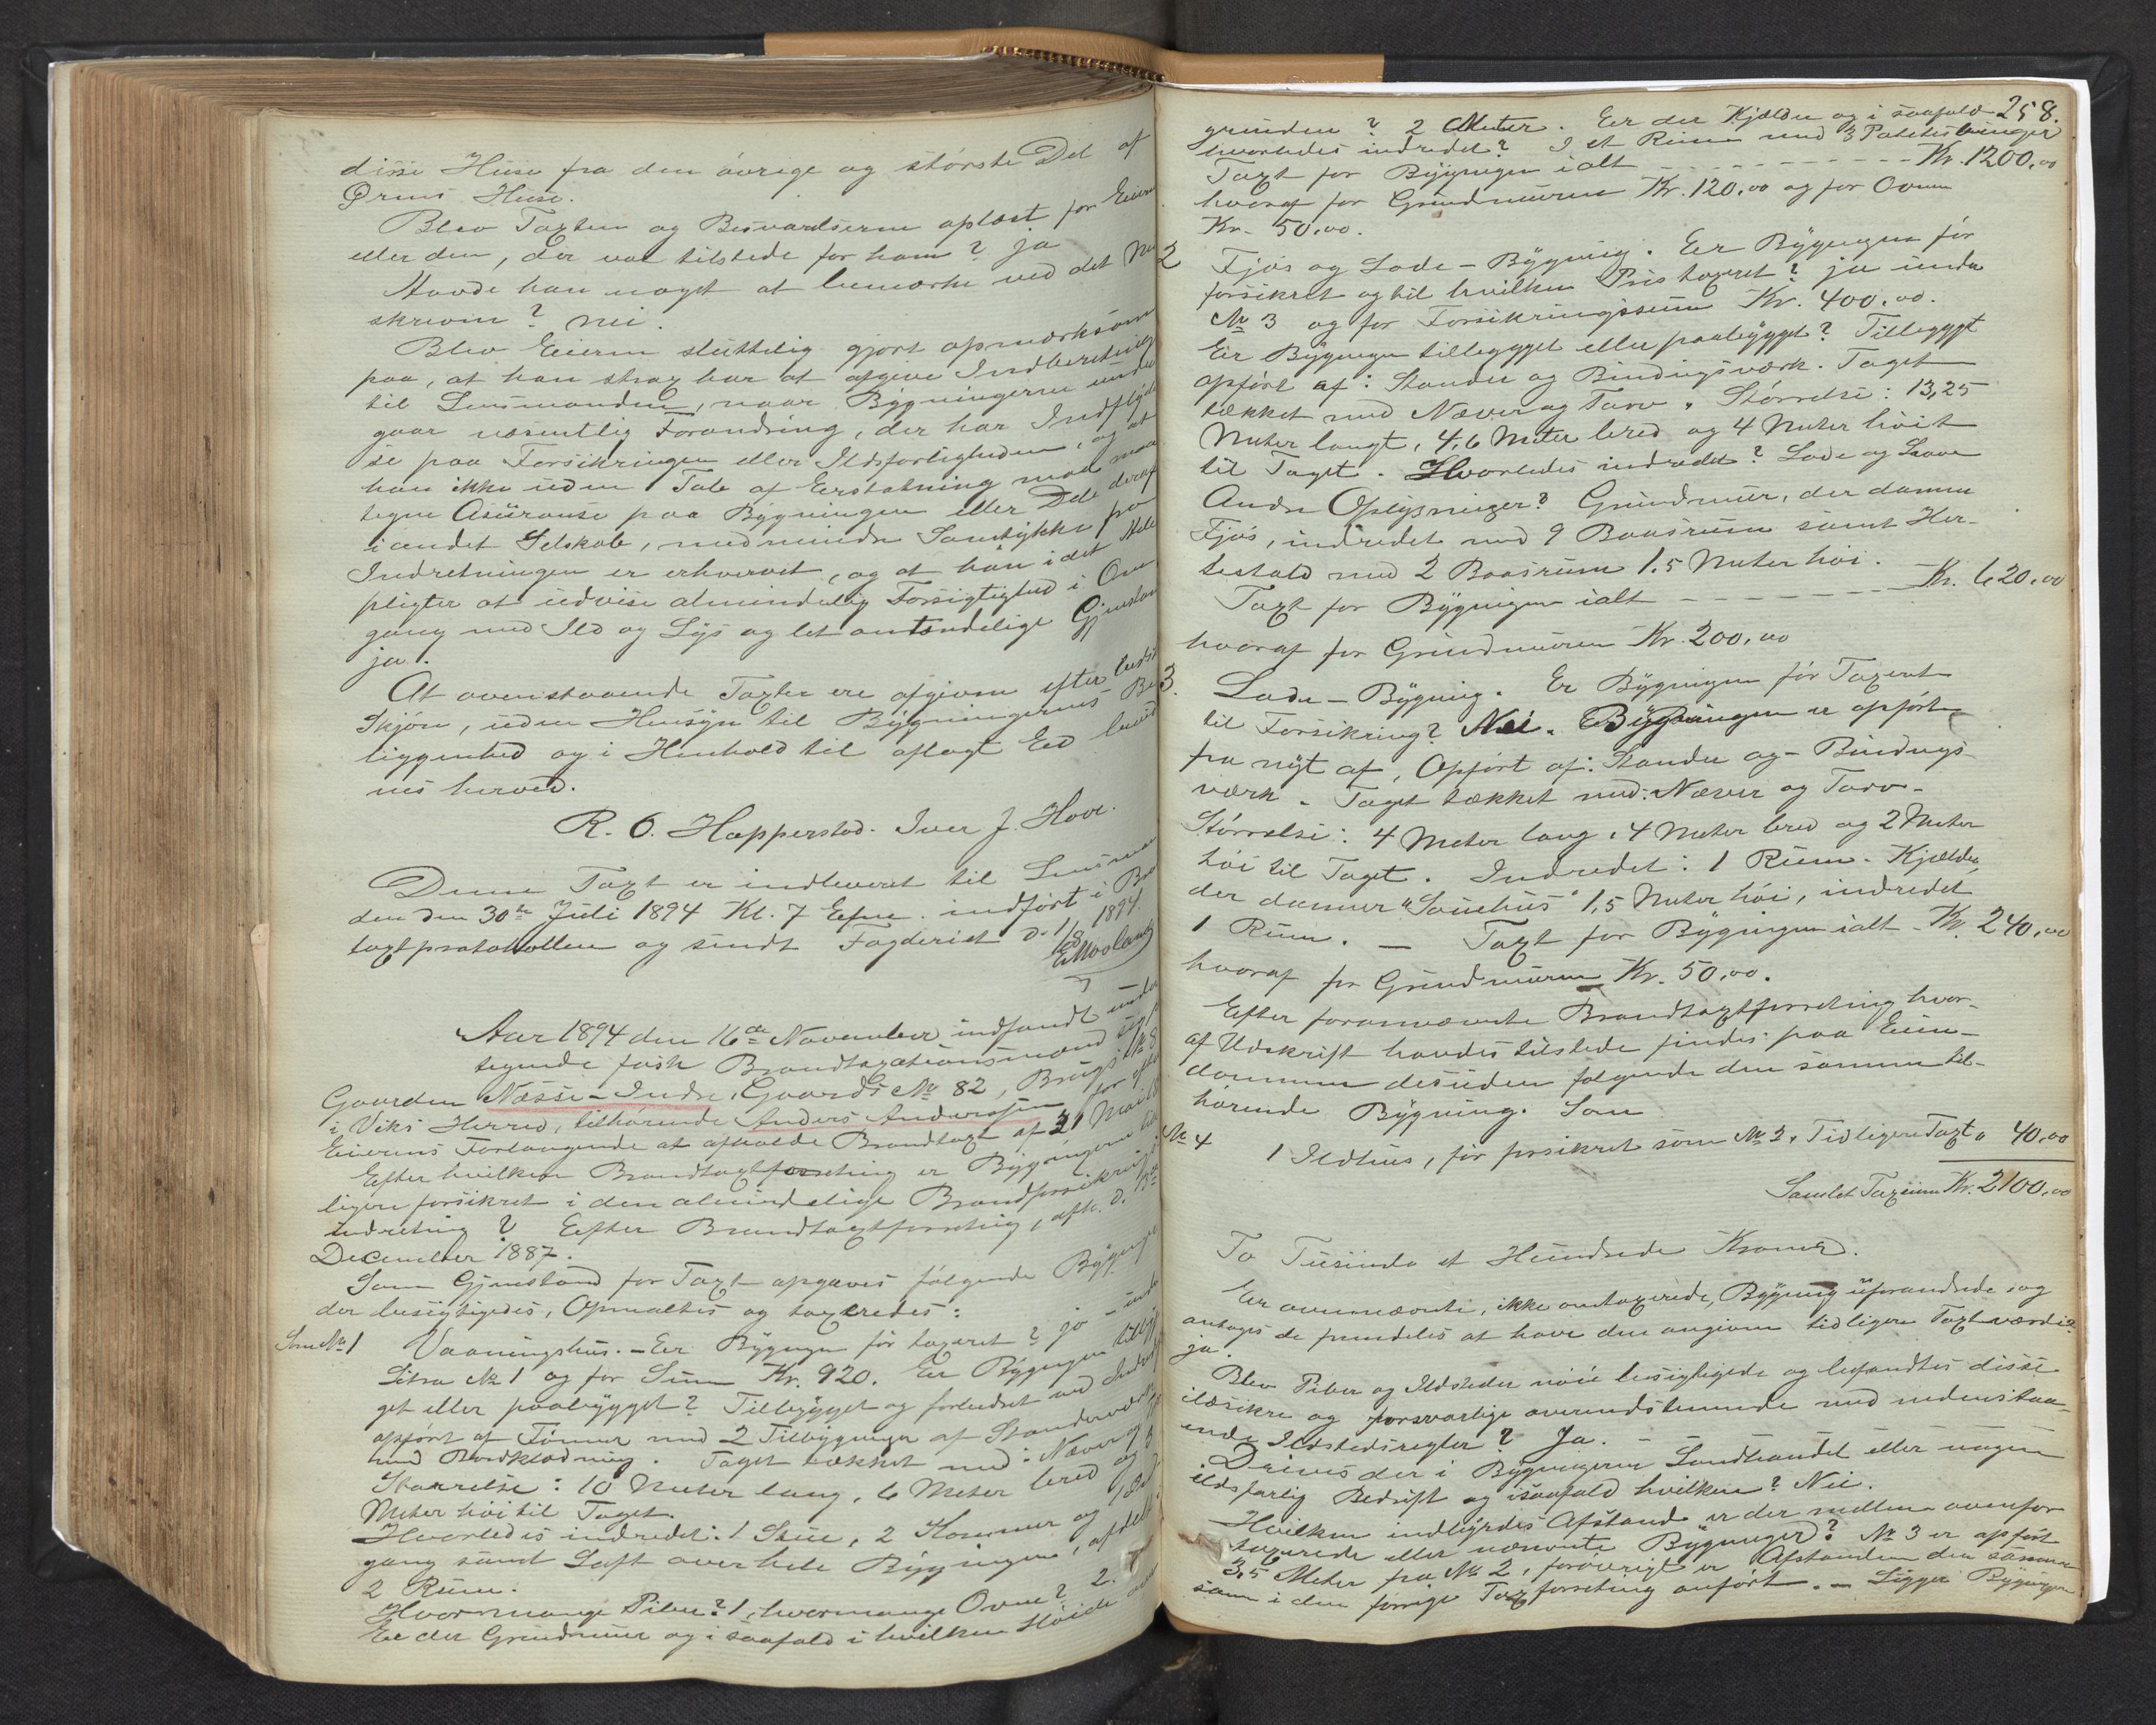 disse Huse fra den øvrige og største Del af
Ørens Huse.
Blev Taxten og Besvarelserne oplæst for Eieren
eller den, der var tilstede for ham? ja
Havde han noget at bemærke ved det Ned
skrevne? nei.
Blev Eieren sluttelig gjort opmærksom
paa, at han strax har at afgive Indberetning
til Lensmanden, naar Bygningerne under
gaar væsentlig Forandring, der har Indflydel
se paa Forsikringen eller Ildsfarligheden, og at
han ikke uden Tab af Erstatning maa
tegne Assuranse paa Bygningen eller Dele deraf
i andet Selskab, medmindre Samtykke fra
Indretningen er erhvervet, og at han i det Hele
pligter at udvise almindelig Forsigtighed i Om
gang med Ild og Lys og let antændelige Gjenstan
ja.
At ovenstaaende Taxter ere afgivne efter bedste
Skjøn, uden Hensyn til Bygningernes Be
liggenhed og i Henhold til aflagt Eed bevid
nes herved.
R. O. Hopperstad. Iver J. Hove.
Denne Taxt er indleveret til Lensman
den den 30te Juli 1894 Kl. 7 Efm. indført i Bran
taxtprotokollen og sendt Fogderiet d. 1/8 1894.
Aar 1894 den 16de November indfandt under
tegnede faste Brandtaxationsmænd sig p
Gaarden Næsse-Indre, Gaards No 82, Brugs No 8
i Viks Herred, tilhørende Anders Anderssen for efter
Eierens Forlangende at afholde Brandtaxt af 31 Mai 18
Efter hvilken Brandtaxtforretning er Bygningerne tid
ligere forsikret i den almindelige Brandforsikrings
indretning? Efter Brandtaxtforretning, afh. d. 15de
December 1887.
Som Gjenstand for Taxt opgaves følgende Bygninger
der besigtigedes, Opmaaltes og taxeredes:
Som No 1 Vaaningshus. - Er Bygngen før taxeret? ja - under
Litra No 1 og for Sum Kr. 920. Er Bygngen tilbyg
get eller paabygget? Tilbygget og forbedret ved Indred
opført af Tømmer med 2 Tilbygninger af Standerværk
med Bordklædning. Taget tækket med: Næver og
Størrelse: 10 Meter lang, 6 Meter bred og 3
Meter høi til Taget.
Hvorledes indredet: 1 Stue, 2 Kammer og
gang samt Loft over hele Bygningen, afdelt
2 Rum.
Hvormange Piber? 1, hvormange Ovne? 2.
Er der Grundmur og i saafald i hvilken Høide over
258.
grunden? 2 Meter. Er der Kjælder og i saafald
hvorledes indredet? I et Rum med 3 Potetesbinger
Taxt for Bygningen ialt - - - - - - - - - Kr. 1200,00
hvoraf for Grundmuren Kr. 120,00 og for Ovnen
Kr. 50,00.
2 Fjøs og Lade-Bygning. Er Bygngen før
forsikret og til hvilken Pris taxeret? ja under
No 3 og for Forsikringssum Kr. 400,00.
Er Bygngen tilbygget eller paabygget? Tilbyggt
opført af: Stander og Bindingsværk. Taget
tækket med Næver og Tørv. Størrelse: 13,25
Meter langt, 4,6 Meter bred og 4 Meter høit
til Taget. Hvorledes indredet? Lade og Laave
Andre Oplysninger? Grundmur, der danner
Fjøs, indredet med 9 Baasrum samt Hes-
testald med 2 Baasrum 1.5 Meter høi.
Taxt for Bygningen ialt - - - - - - - Kr. 620,00
hvoraf for Grundmuren Kr. 200,00
3. Lade-Bygning. Er Bygningen før Taxeret
til Forsikring? Nei. Bygningen er opført
fra nyt af, Opført af: Stander og Bindings-
værk. Taget tækket med: Næver og Tørv.
Størrelse: 4 Meter lang, 4 Meter bred og 2 Meter
høi til Taget. Indredet: 1 Rum. Kjælder,
der danner "Sauehus" 1,5 Meter høi, indredet
1 Rum. - Taxt for Bygningen ialt - Kr. 240,00
hvoraf for Grundmuren Kr. 50,00.
Efter forannævnte Brandtaxtforretning hvor-
af Udskrift havdes tilstede findes paa Eien-
dommen desuden følgende den samme til-
hørende Bygning. Som
No 4 1 Ildhus, før forsikret som No 2. Tidligere Taxt " 40,00
Samlet Taxsum Kr. 2100,00
To Tusinde et Hundrede Kroner.
Er ovennævnte, ikke omtaxerede, Bygning uforandrede og
antages de fremdeles at have den angivne tidligere Taxtværdi?
ja.
Blev Piber og Ildsteder nøie besigtigede og befandtes disse
ildsikre og forsvarlige overensstemmende med nedenstaa-
ende Ildstedsregler? Ja. -
Drives der i Bygningerne Landhandel eller nogen
ildsfarlig Bedrift og isaafald hvilken? Nei.
Hvilken indbyrdes Afstand er der mellem ovenfor
taxerede eller nævnte Bygninger? No 3 er opført
3,5 Meter fra No 2, forøvrigt er Afstanden den samme
som i den forrige Taxforretning anført. - Ligger Bygngen